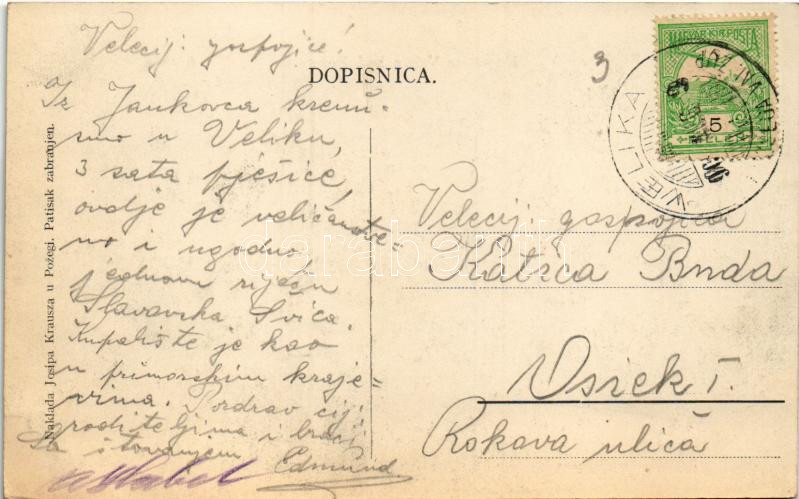 Velecij: gospojice!
DOPISNICA.
3
Iz Jankovca krenu-
smo u Veliku,
3 sata pješice,
ovdje je veličanstve=
no i ugodno,
jednom riječju
Slavonska Švica.
Kupalište je kao
u primorskim kraje=
vima. Pozdrav cij:
roditeljima i braći
Sa štovanjem
Edmund
Naklada Josipa Krausza u Požegi. Patisak zabranjen.
MAGYAR KIR. POSTA
5
VELIKA
Velecij: gospojica
Katica Brda
Osiek I.
Rokova ulica
darabanth